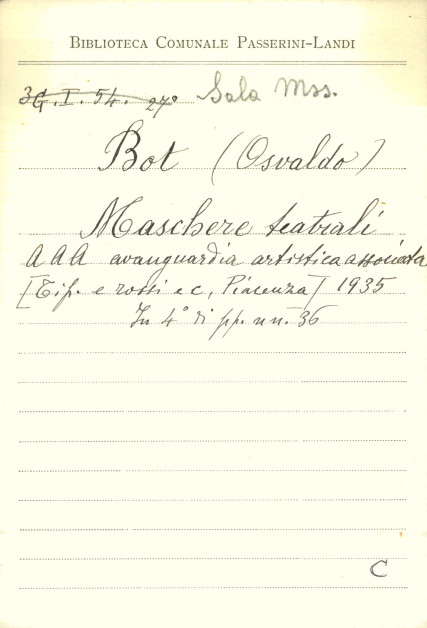 BIBLIOTECA COMUNALE PASSERINI-LANDI
3G.I.54. 27° Sala Mss.
Bot (Osvaldo)
Maschere teatrali
AAA avanguardia artistica associata
[Tip. e rossi e c, Piacenza] 1935
In 4° di pp. nn. 36
C